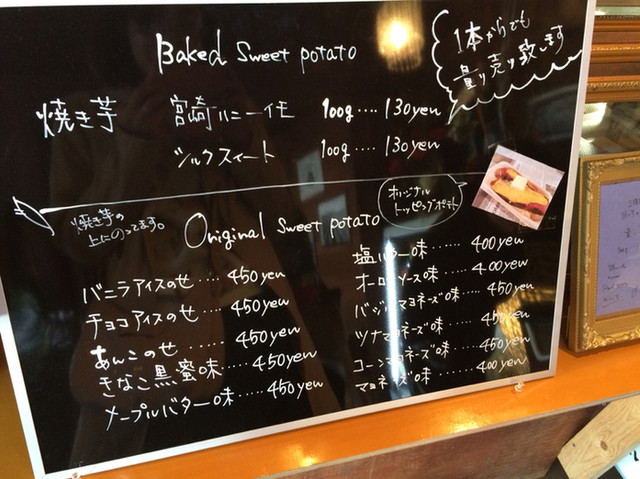 Baked Sweet potato
1本からでも
量り売り致します
焼き芋
宮崎ハニーイモ 100g…. 130yen
シルクスィート 100g…. 130yen
オリジナル
トッピングポテト
焼き芋の
上にのってます。
Original Sweet potato
バニラアイスのせ….. 450yen
チョコアイスのせ….. 450yen
あんこのせ…… 450yen
きなこ黒蜜味…. 450yen
メープルバター味….. 450yen
塩バター味…… 400yen
オーロラソース味…. 400yen
バジルマヨネーズ味…. 450yen
ツナマヨネーズ味….. 450yen
コーンマヨネーズ味…. 450yen
マヨネーズ味…… 400yen